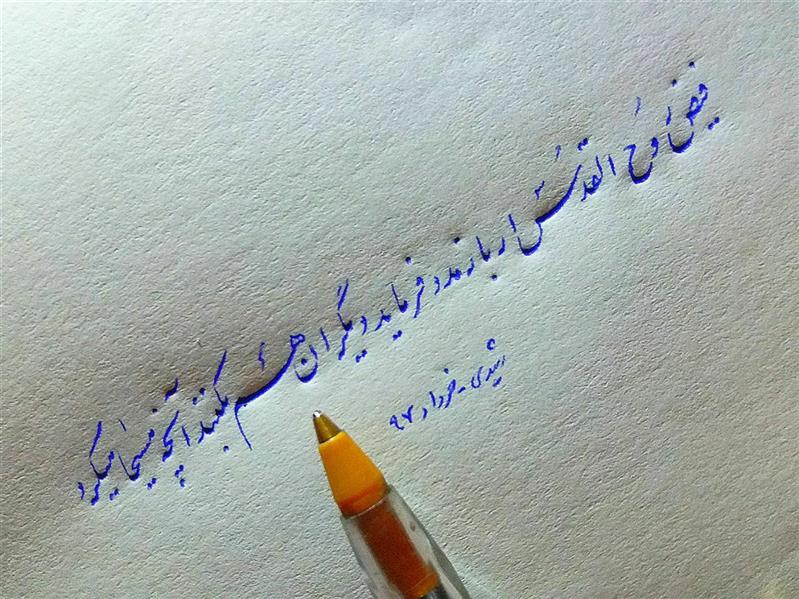 فیض روح القدس ار باز مدد فرماید دیگران هم بکنند آنچه مسیحا میکرد
رشیدی - خرداد ۹۶